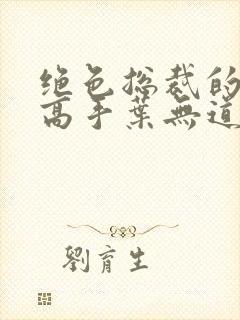 绝色总裁的
高手葉無道
劉育生